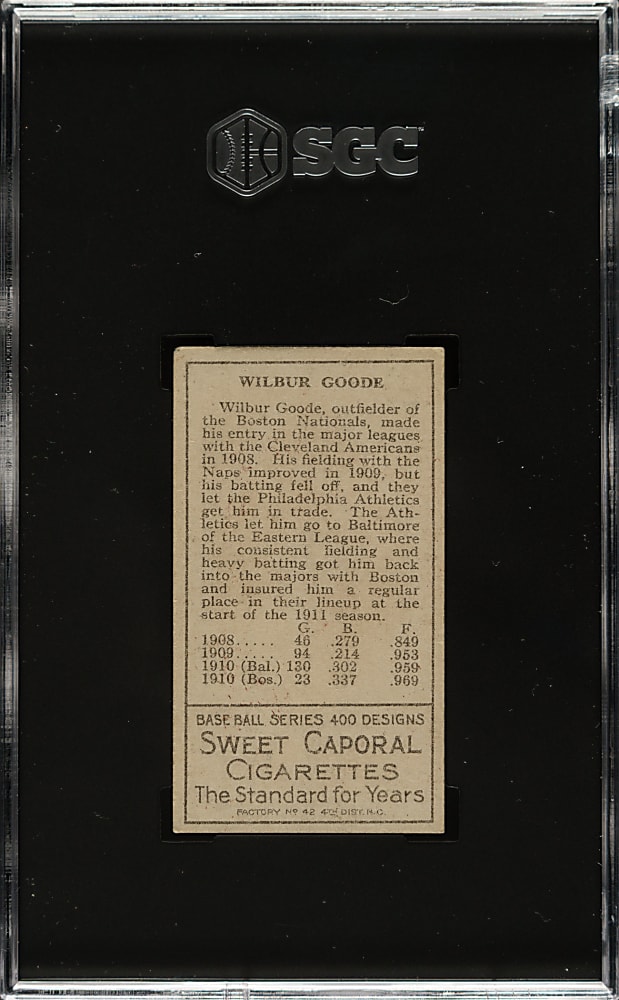 SGC
WILBUR GOODE
Wilbur Goode, outfielder of
the Boston Nationals, made
his entry in the major leagues
with the Cleveland Americans
in 1908. His fielding with the
Naps improved in 1909, but
his batting fell off, and they
let the Philadelphia Athletics
get him in trade. The Ath-
letics let him go to Baltimore
of the Eastern League, where
his consistent fielding and
heavy batting got him back
into the majors with Boston
and insured him a regular
place in their lineup at the
start of the 1911 season.
G. B. F.
1908..... 46 .279 .849
1909..... 94 .214 .953
1910 (Bal.) 130 .302 .959
1910 (Bos.) 23 .337 .969
BASE BALL SERIES 400 DESIGNS
SWEET CAPORAL
CIGARETTES
The Standard for Years
FACTORY Nº 42 4TH DIST. N.C.